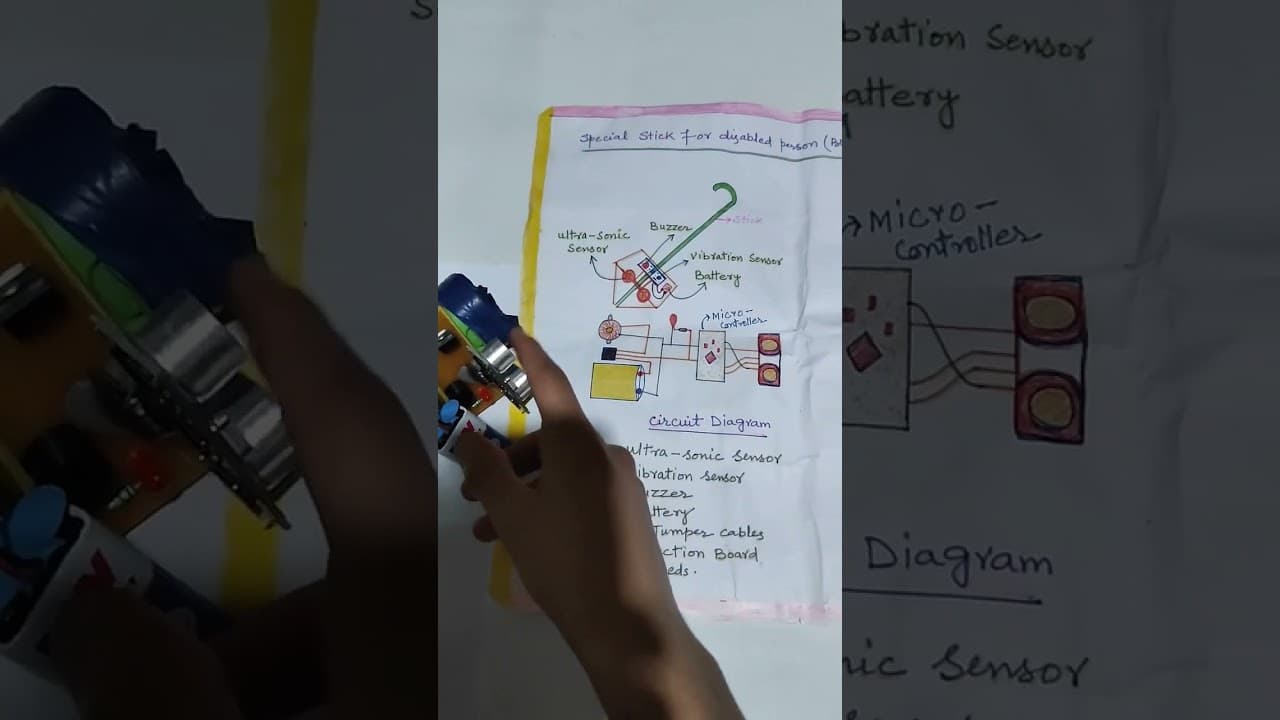 Special Stick for disabled person (
Stick
Buzzer
ultra-sonic
Sensor
Vibration Sensor
Battery
Micro-
controller
Circuit Diagram
ultra-sonic sensor
ibration sensor
uzzer
ttery
Jumper cables
ction Board
eds.
bration Sensor
attery
Micro-
controller
Diagram
nic Sensor